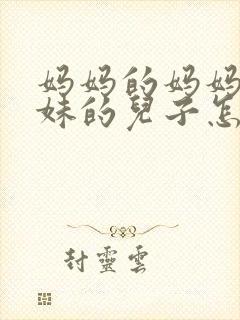 妈妈的妈妈
妹的兒子怎
封靈雲